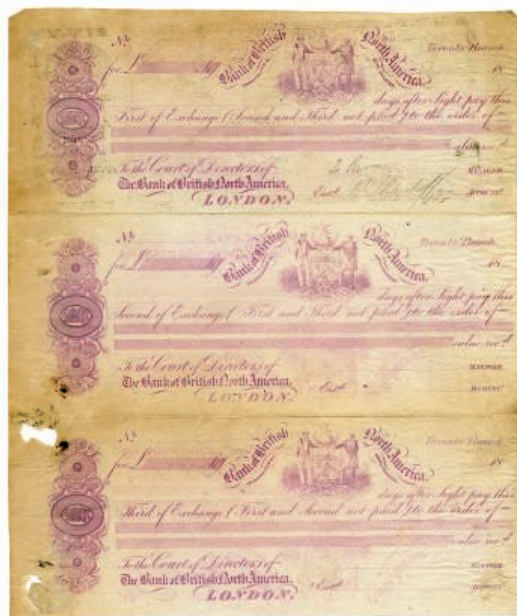 No.
Toronto Branch
for £
Bank of British North America.
18
days after Sight pay this
First of Exchange (Second and Third not paid) to the order of
value rec.d
To the Court of Directors of
The Bank of British North America,
LONDON.
Ent.d
MANAGER
ACCOUNT.T
No.
Toronto Branch
for £
Bank of British North America.
18
days after Sight pay this
Second of Exchange (First and Third not paid) to the order of
value rec.d
To the Court of Directors of
The Bank of British North America,
LONDON.
Ent.d
MANAGER
ACCOUNT.T
No.
Toronto Branch
for £
Bank of British North America.
18
days after Sight pay this
Third of Exchange (First and Second not paid) to the order of
value rec.d
To the Court of Directors of
The Bank of British North America,
LONDON.
Ent.d
MANAGER
ACCOUNT.T